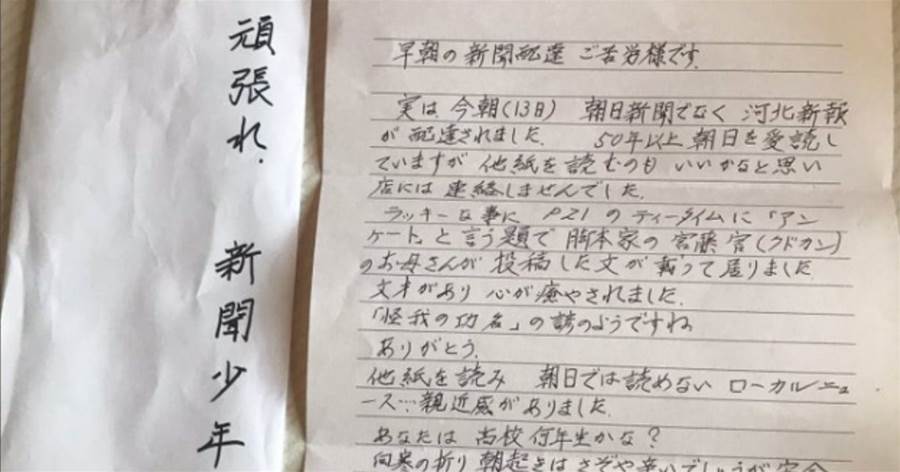 頑張れ. 新聞少年
早朝の新聞配達 ご苦労様です.
実は 今朝(13日) 朝日新聞でなく 河北新報
が 配達されました. 50年以上 朝日を愛読し
ていますが 他紙を読むのも いいかなと思い
店には 連絡しませんでした.
ラッキーな事に P21 の ティータイムに「アン
ケート」と言う題で 脚本家の 宮藤官(クドカン)
のお母さんが 投稿した文が 載って居りました
文才があり 心が癒やされました.
「怪我の功名」の諺のようですね
ありがとう.
他紙を読み 朝日では読めない ローカルニュ
ース…親近感がありました.
あなたは 高校何年生かな?
向寒の折り 朝起きは さぞや辛いでしょうが 安全